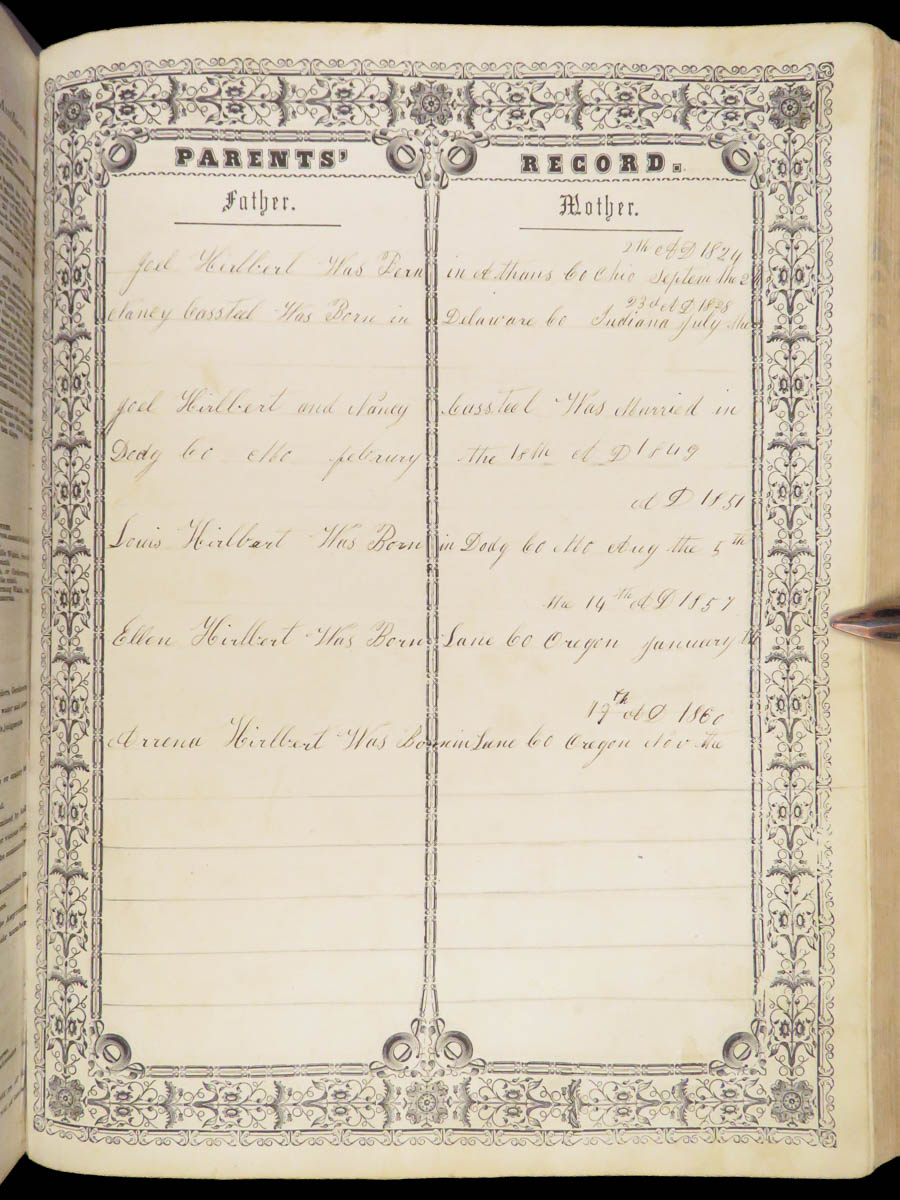 PARENTS' RECORD.
Father. Mother.
2th A D 1824
Joel Hirlbert Was Born in Athans Co Ohio Septem the
23d A D 1828
Nancy Cassteel Was Born in Delaware Co Indiana July the
Joel Hirlbert and Nancy Cassteel Was Married in
Dodg Co Mo februry the 18th A D 1849
A D 1851
Louis Hirlbert Was Born in Dodg Co Mo Aug the 5th
the 14th A D 1857
Ellen Hirlbert Was Born Lane Co Oregon January th
19th A D 1860
Arrena Hirlbert Was Born in Lane Co Oregon Nov the